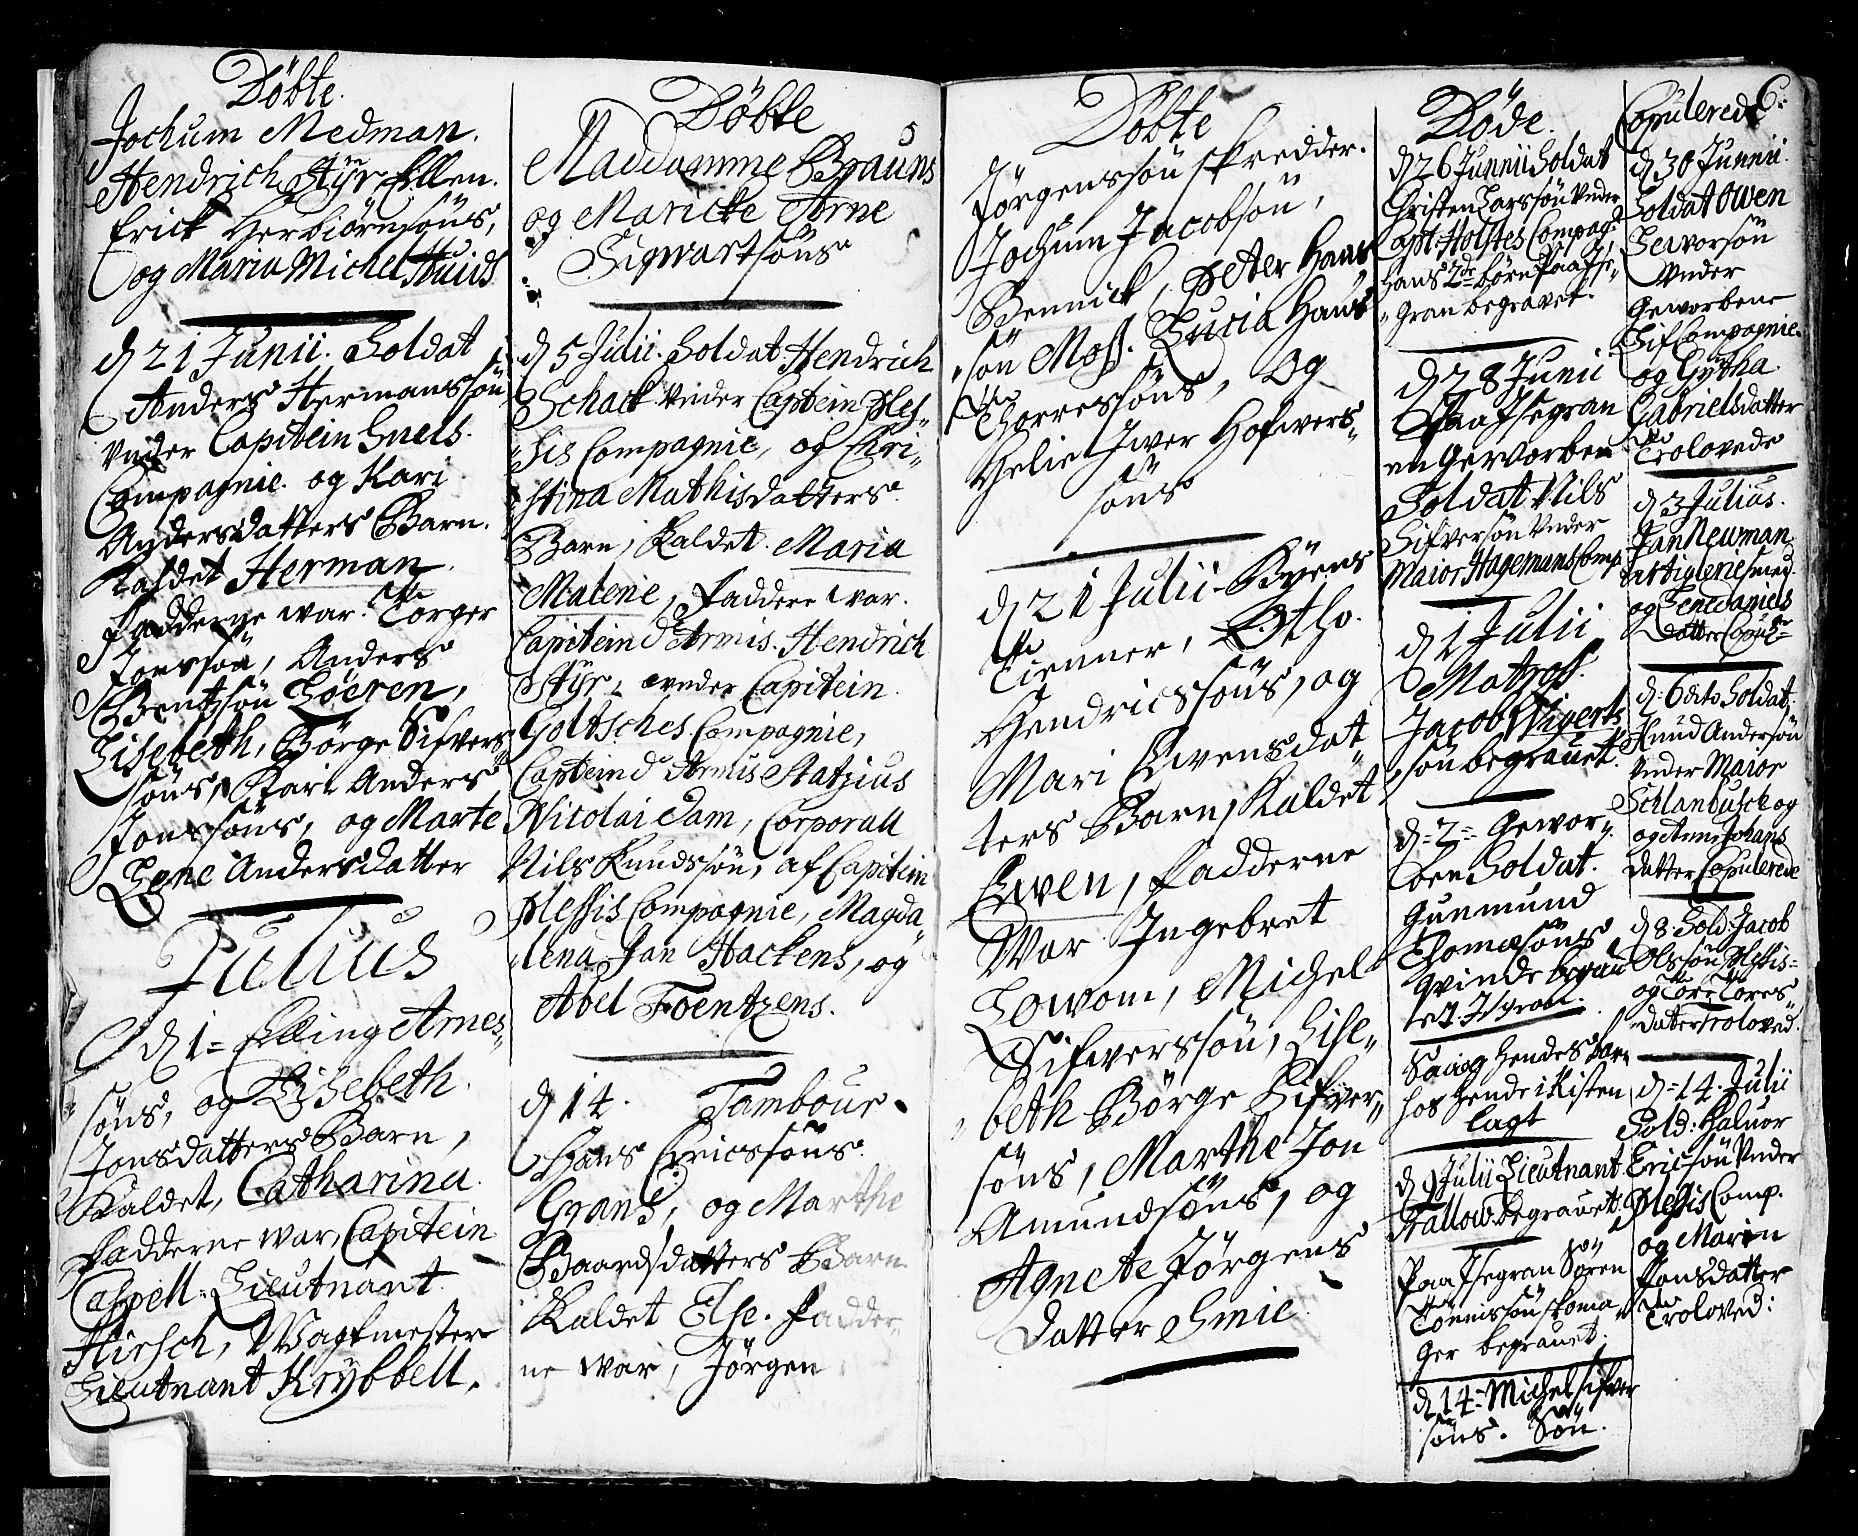 Döbte.
Jochum Medman.
Hendrich Styr, Ellen.
Erick Herbiörnsöns,
og Maria Michel Huids
d 21 Junii. Soldat
Anders Hermanssön
under Capitein Snels.
Compagnie. og Kari
Andersdatters Barn.
Kaldet Herman.
Fadderne war. Torger
Jonssön, Anders
Bentssön Löeren,
Lisebeth, Börge Sifvers
söns, Kari Anders
Jonssöns, og Marte
Lene Andersdatter
Julius
d 1 = Elling Arnes
söns, og Lisebeth.
Jonsdatters Barn,
Kaldet, Catharina.
Fadderne war, Capitein
Caspell = Lieutnant
Hirsch, Wagtmester
Lieutnant Krybbell.
Döbte
5
Maddamme Brauns
og Maricke Arne
Sigwartsöns
d 5 Julii. Soldat Hendrich
Schack under Captein Ples-
sis Compagnie, og Chri-
stina Mathisdatters
Barn, Kaldet. Maria
Malene, Faddere war.
Capitein d'Armis. Hendrich
Styr, under Capitein.
Goltsches Compagnie,
Captein d'Armis Matzius
Nicolai Dam, Corporall
Nils Knudssön, af Capitein
Plessis Compagnie, Magda-
lena Jan Hackens, og
Abel Foentzens.
d 14. Tambour
Hans Ericssöns
Grans, og Marthe
Baardsdatters Barn
Kaldet Else. Fadder-
ne war, Jörgen
Döbte
Jörgenssön Skredder.
Jochum Jacobsön,
Bennick, Peter Hans
sön Moss. Lucia Hans
Thorressöns, Og
Helie Iver Hofwers-
söns
d 21 Julii Byens
Tienner, Otho.
Hendricssöns, og
Mari Ewensdat
ters Barn, Kaldet
Ewen, Fadderne
War Ingebret
Lowom, Michel
Sifverssön, Lise-
beth Börge Sifver-
söns, Marthe Jon
Amundsöns, og
Agnete Jörgens
Datter Smie.
Döde.
d 26 Junnii Soldat
Christen Larssön under
Capt: Holstes Compag:
hans 2de börn paa Ise-
gran begravet.
d 28 Junii
Paa Isegran
en Gervorben
Soldat Nils
Sifversön under
Maior Hagemans Comp.
d 1 Julii
Matros.
Jacob Wigerts
sön begrauet.
d = 2 = Gewor-
ben Soldat.
Gunmund
Thomæsöns
Qvinde begrau
et Isgran.
Saaog hendes barn
hos hende i Kisten
lagt
d 9 Julii Lieutnant
Trallow begrauet.
Paa Isegran Sören
Tönnissön Skoma
ger begrauet.
d 14 = Michel Sifver
söns. Sön.
Copulerede
6:
d 30 Junnii.
Soldat Owen
Leivorsön
Under
Geworbene
Lif Compagnie.
og Gÿtha
Gabrielsdatter
Trolovede
d 3 Julius.
Jan Neuman
Artiglerie smed.
og Lene Daniels
datter Copul =
d = 6 dito Soldat
Knud Andersön
Under Maior
Schlanbusch og
og Anne Johans
Datter Copulerede
d 8 Sold: Jacob
Olssön Plessis =
og Tore Tores-
dater troloved.
d = 14. Julii
Sold: Haluor
Ericsön under
Plessis Comp.
og Maren
Jonsdatter
Troloved: